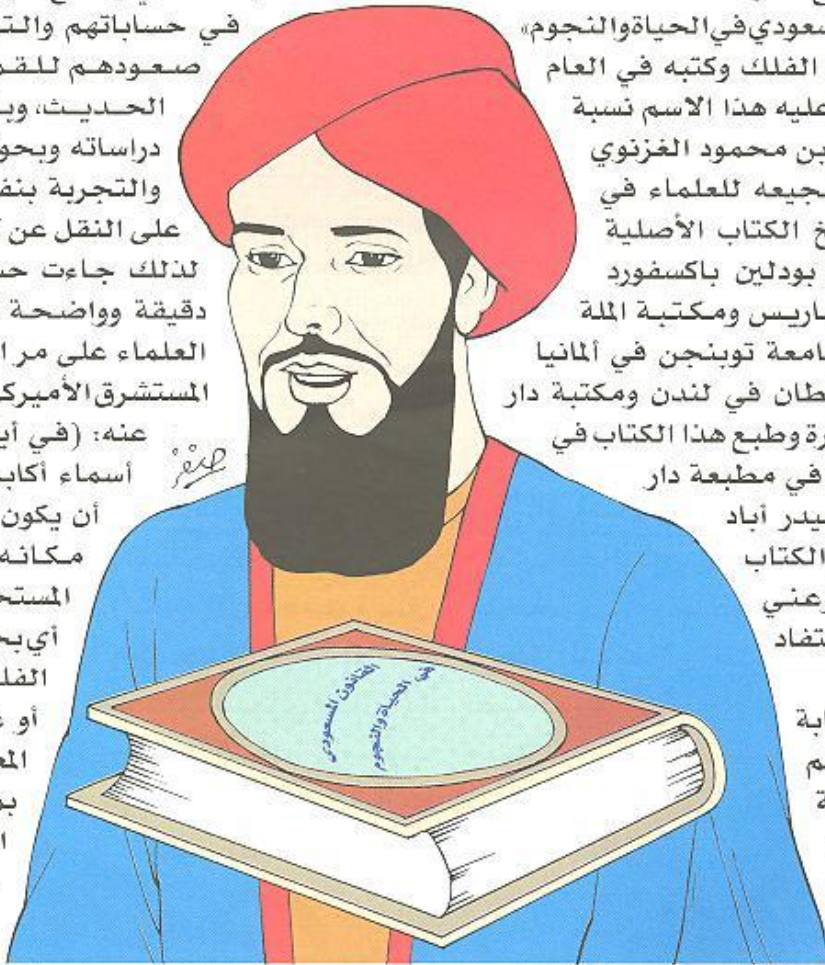 سعودي في الحياة والنجوم»
الفلك وكتبه في العام
عليه هذا الاسم نسبة
بن محمود الغزنوي
جيعه للعلماء في
خ الكتاب الأصلية
بودلين باكسفورد
اريس ومكتبة الملة
امعة توبنجن في ألمانيا
طان في لندن ومكتبة دار
رة وطبع هذا الكتاب في
في مطبعة دار
يدر أباد
الكتاب
رعني
تفاد
ابة
م
ة
في حساباتهم والتـ
صعودهم للقمـ
الحديث، وبـ
دراساته وبحو
والتجربة بنفـ
على النقل عن
لذلك جاءت حسـ
دقيقة وواضحة
العلماء على مر ا
المستشرق الأميركـ
عنه: (في أيـ
أسماء أكابـ
أن يكون
مكانه
المستحـ
أي بحـ
الفلـ
أو عـ
المعـ
بر
ا
القانون المسعودي
في الحياة والنجوم